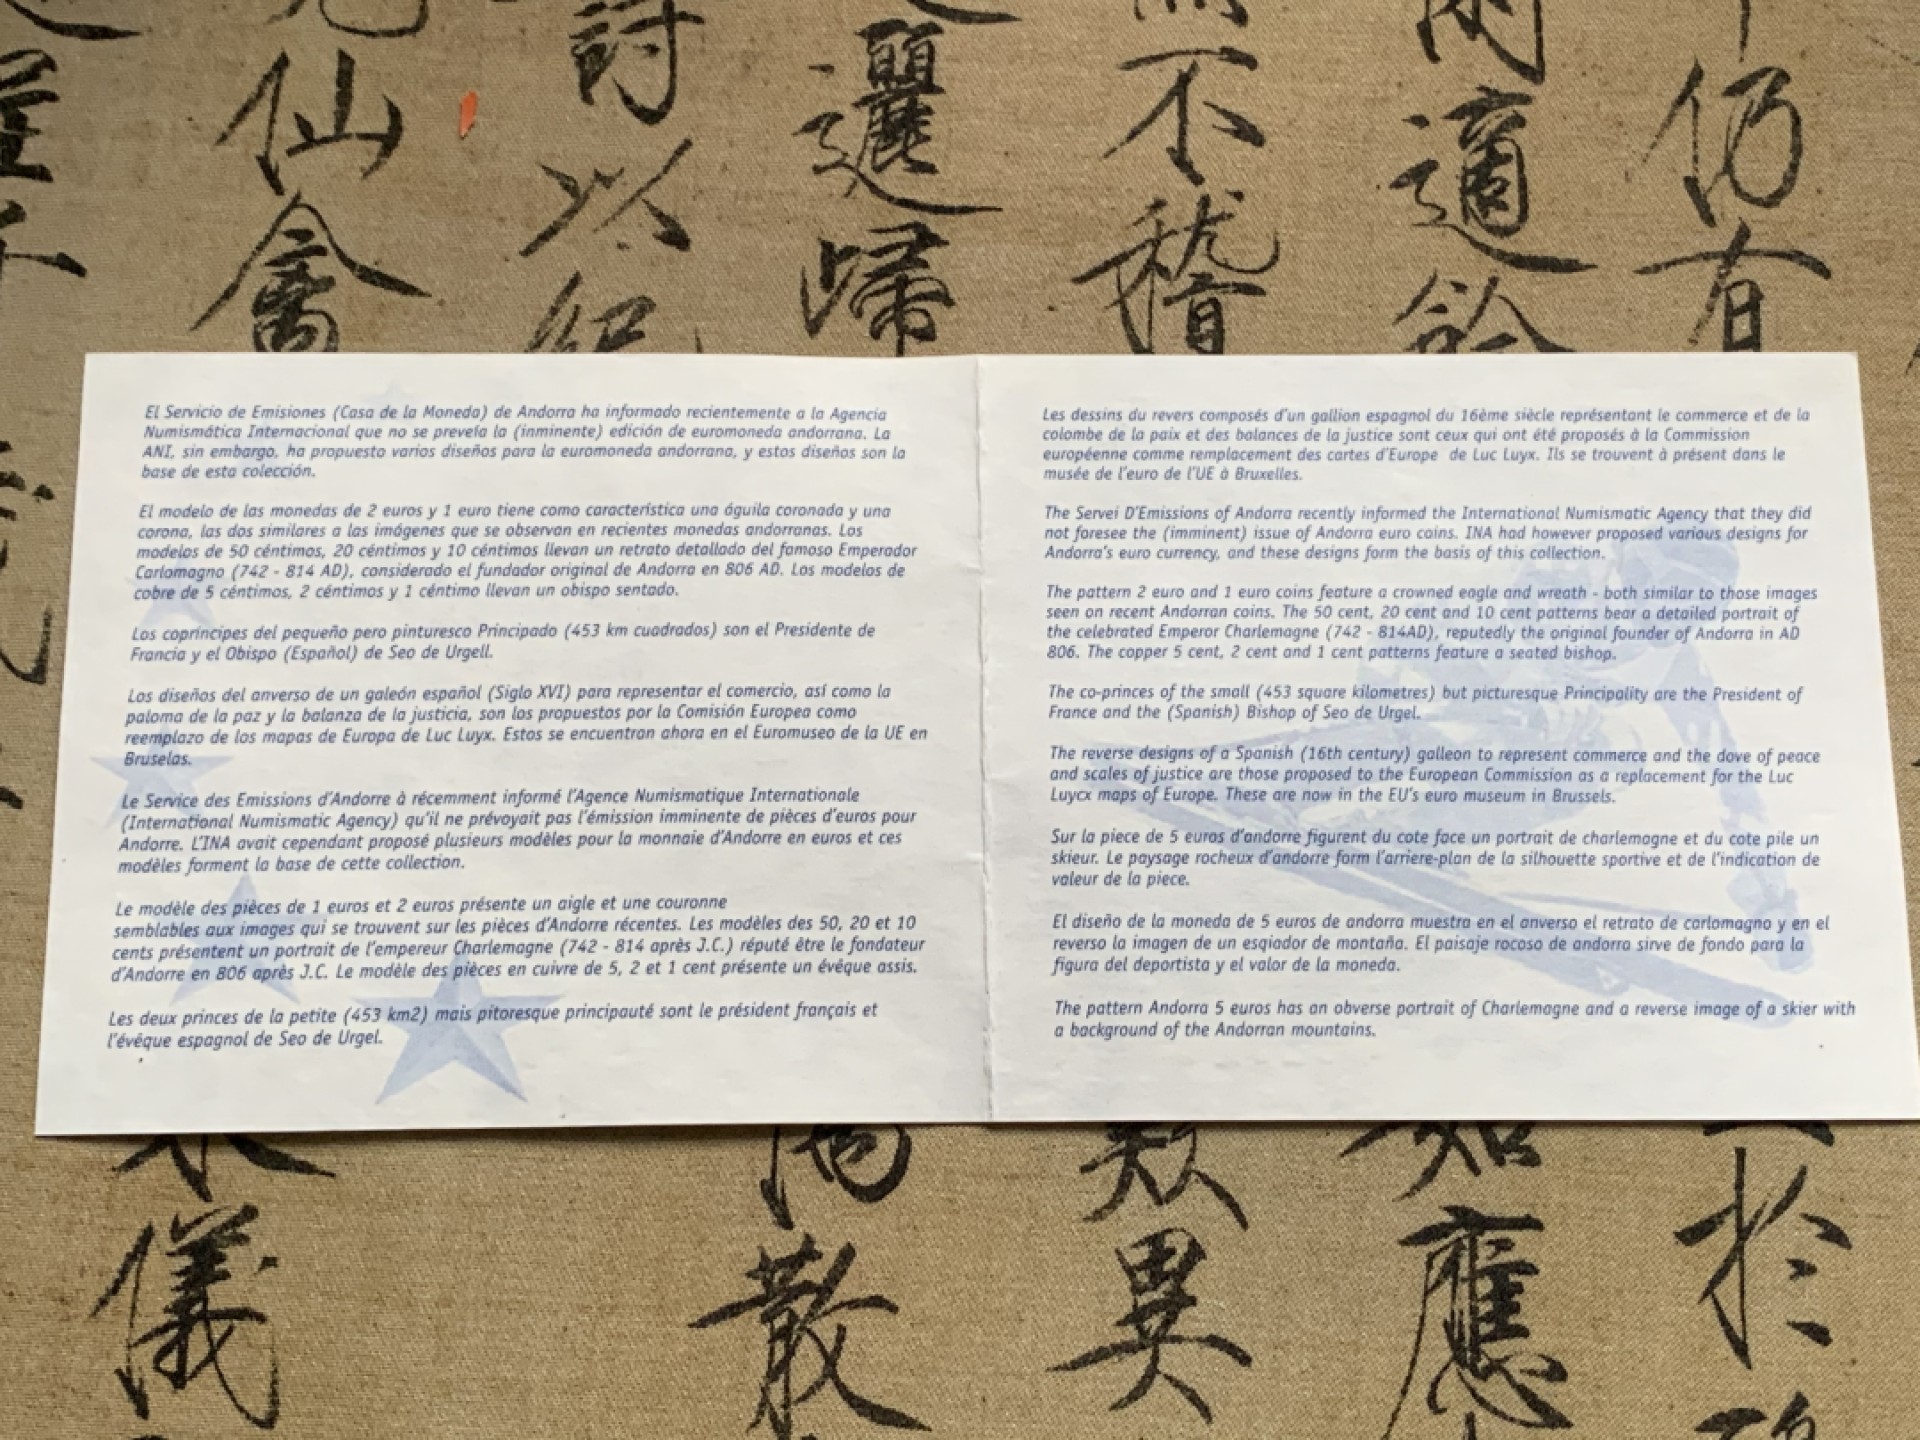 El Servicio de Emisiones (Casa de la Moneda) de Andorra ha informado recientemente a la Agencia
Numismática Internacional que no se preveía la (inminente) edición de euromoneda andorrana. La
ANI, sin embargo, ha propuesto varios diseños para la euromoneda andorrana, y estos diseños son la
base de esta colección.
El modelo de las monedas de 2 euros y 1 euro tiene como característica una águila coronada y una
corona, las dos similares a las imágenes que se observan en recientes monedas andorranas. Los
modelos de 50 céntimos, 20 céntimos y 10 céntimos llevan un retrato detallado del famoso Emperador
Carlomagno (742 - 814 AD), considerado el fundador original de Andorra en 806 AD. Los modelos de
cobre de 5 céntimos, 2 céntimos y 1 céntimo llevan un obispo sentado.
Los copríncipes del pequeño pero pinturesco Principado (453 km cuadrados) son el Presidente de
Francia y el Obispo (Español) de Seo de Urgell.
Los diseños del anverso de un galeón español (Siglo XVI) para representar el comercio, así como la
paloma de la paz y la balanza de la justicia, son los propuestos por la Comisión Europea como
reemplazo de los mapas de Europa de Luc Luyx. Estos se encuentran ahora en el Euromuseo de la UE en
Bruselas.
Le Service des Emissions d'Andorre à récemment informé l'Agence Numismatique Internationale
(International Numismatic Agency) qu'il ne prévoyait pas l'émission imminente de pièces d'euros pour
Andorre. L'INA avait cependant proposé plusieurs modèles pour la monnaie d'Andorre en euros et ces
modèles forment la base de cette collection.
Le modèle des pièces de 1 euros et 2 euros présente un aigle et une couronne
semblables aux images qui se trouvent sur les pièces d'Andorre récentes. Les modèles des 50, 20 et 10
cents présentent un portrait de l'empereur Charlemagne (742 - 814 après J.C.) réputé être le fondateur
d'Andorre en 806 après J.C. Le modèle des pièces en cuivre de 5, 2 et 1 cent présente un évêque assis.
Les deux princes de la petite (453 km2) mais pitoresque principauté sont le président français et
l'évêque espagnol de Seo de Urgel.
Les dessins du revers composés d'un gallion espagnol du 16ème siècle représentant le commerce et de la
colombe de la paix et des balances de la justice sont ceux qui ont été proposés à la Commission
européenne comme remplacement des cartes d'Europe de Luc Luyx. Ils se trouvent à présent dans le
musée de l'euro de l'UE à Bruxelles.
The Servei D'Emissions of Andorra recently informed the International Numismatic Agency that they did
not foresee the (imminent) issue of Andorra euro coins. INA had however proposed various designs for
Andorra's euro currency, and these designs form the basis of this collection.
The pattern 2 euro and 1 euro coins feature a crowned eagle and wreath - both similar to those images
seen on recent Andorran coins. The 50 cent, 20 cent and 10 cent patterns bear a detailed portrait of
the celebrated Emperor Charlemagne (742 - 814AD), reputedly the original founder of Andorra in AD
806. The copper 5 cent, 2 cent and 1 cent patterns feature a seated bishop.
The co-princes of the small (453 square kilometres) but picturesque Principality are the President of
France and the (Spanish) Bishop of Seo de Urgel.
The reverse designs of a Spanish (16th century) galleon to represent commerce and the dove of peace
and scales of justice are those proposed to the European Commission as a replacement for the Luc
Luycx maps of Europe. These are now in the EU's euro museum in Brussels.
Sur la piece de 5 euros d'andorre figurent du cote face un portrait de charlemagne et du cote pile un
skieur. Le paysage rocheux d'andorre form l'arriere-plan de la silhouette sportive et de l'indication de
valeur de la piece.
El diseño de la moneda de 5 euros de andorra muestra en el anverso el retrato de carlomagno y en el
reverso la imagen de un esqiador de montaña. El paisaje rocoso de andorra sirve de fondo para la
figura del deportista y el valor de la moneda.
The pattern Andorra 5 euros has an obverse portrait of Charlemagne and a reverse image of a skier with
a background of the Andorran mountains.
仍有
適
不稽
邐歸
詩以紀
仙禽
於
應
異
散
儀